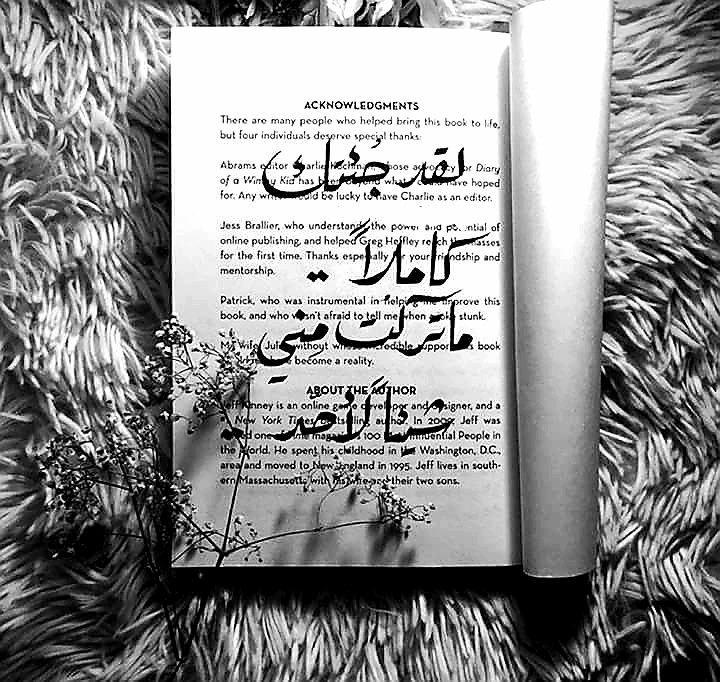 ACKNOWLEDGMENTS
There are many people who helped bring this book to life,
but four individuals deserve special thanks:
لقد جُئتك
Abrams editor Charlie Kochman, whose advocacy for Diary
of a Wimpy Kid has been beyond what I could have hoped
for. Any writer would be lucky to have Charlie as an editor.
Jess Brallier, who understands the power and potential of
online publishing, and helped Greg Heffley reach the masses
for the first time. Thanks especially for your friendship and
mentorship.
كاملاً ..
Patrick, who was instrumental in helping me improve this
book, and who wasn't afraid to tell me when a joke stunk.
ماتركت مِني
My wife, Julie, without whose incredible support this book
would not have become a reality.
ABOUT THE AUTHOR
Jeff Kinney is an online game developer and designer, and a
New York Times bestselling author. In 2009, Jeff was
named one of Time magazine's 100 Most Influential People in
شيئاً لأحد ..
the World. He spent his childhood in the Washington, D.C.,
area and moved to New England in 1995. Jeff lives in south-
ern Massachusetts with his wife and their two sons.